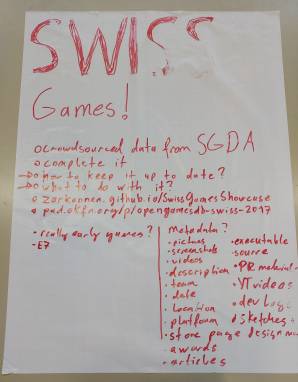 SWISS
Games!
o crowdsourced data from SGDA
o complete it
→o how to keep it up to date?
→o what to do with it?
o zarkonnen.github.io/SwissGamesShowcase
o pad.okfn.org/p/opengamesdb-swiss-2017
• really early games?
- E7
Metadata?
• pictures
• screenshots
• videos
• description
• team
• date
• location
• platform
• store page design
• awards
• articles
• executable
• source
• PR material
• YT videos
• dev logs
• sketches